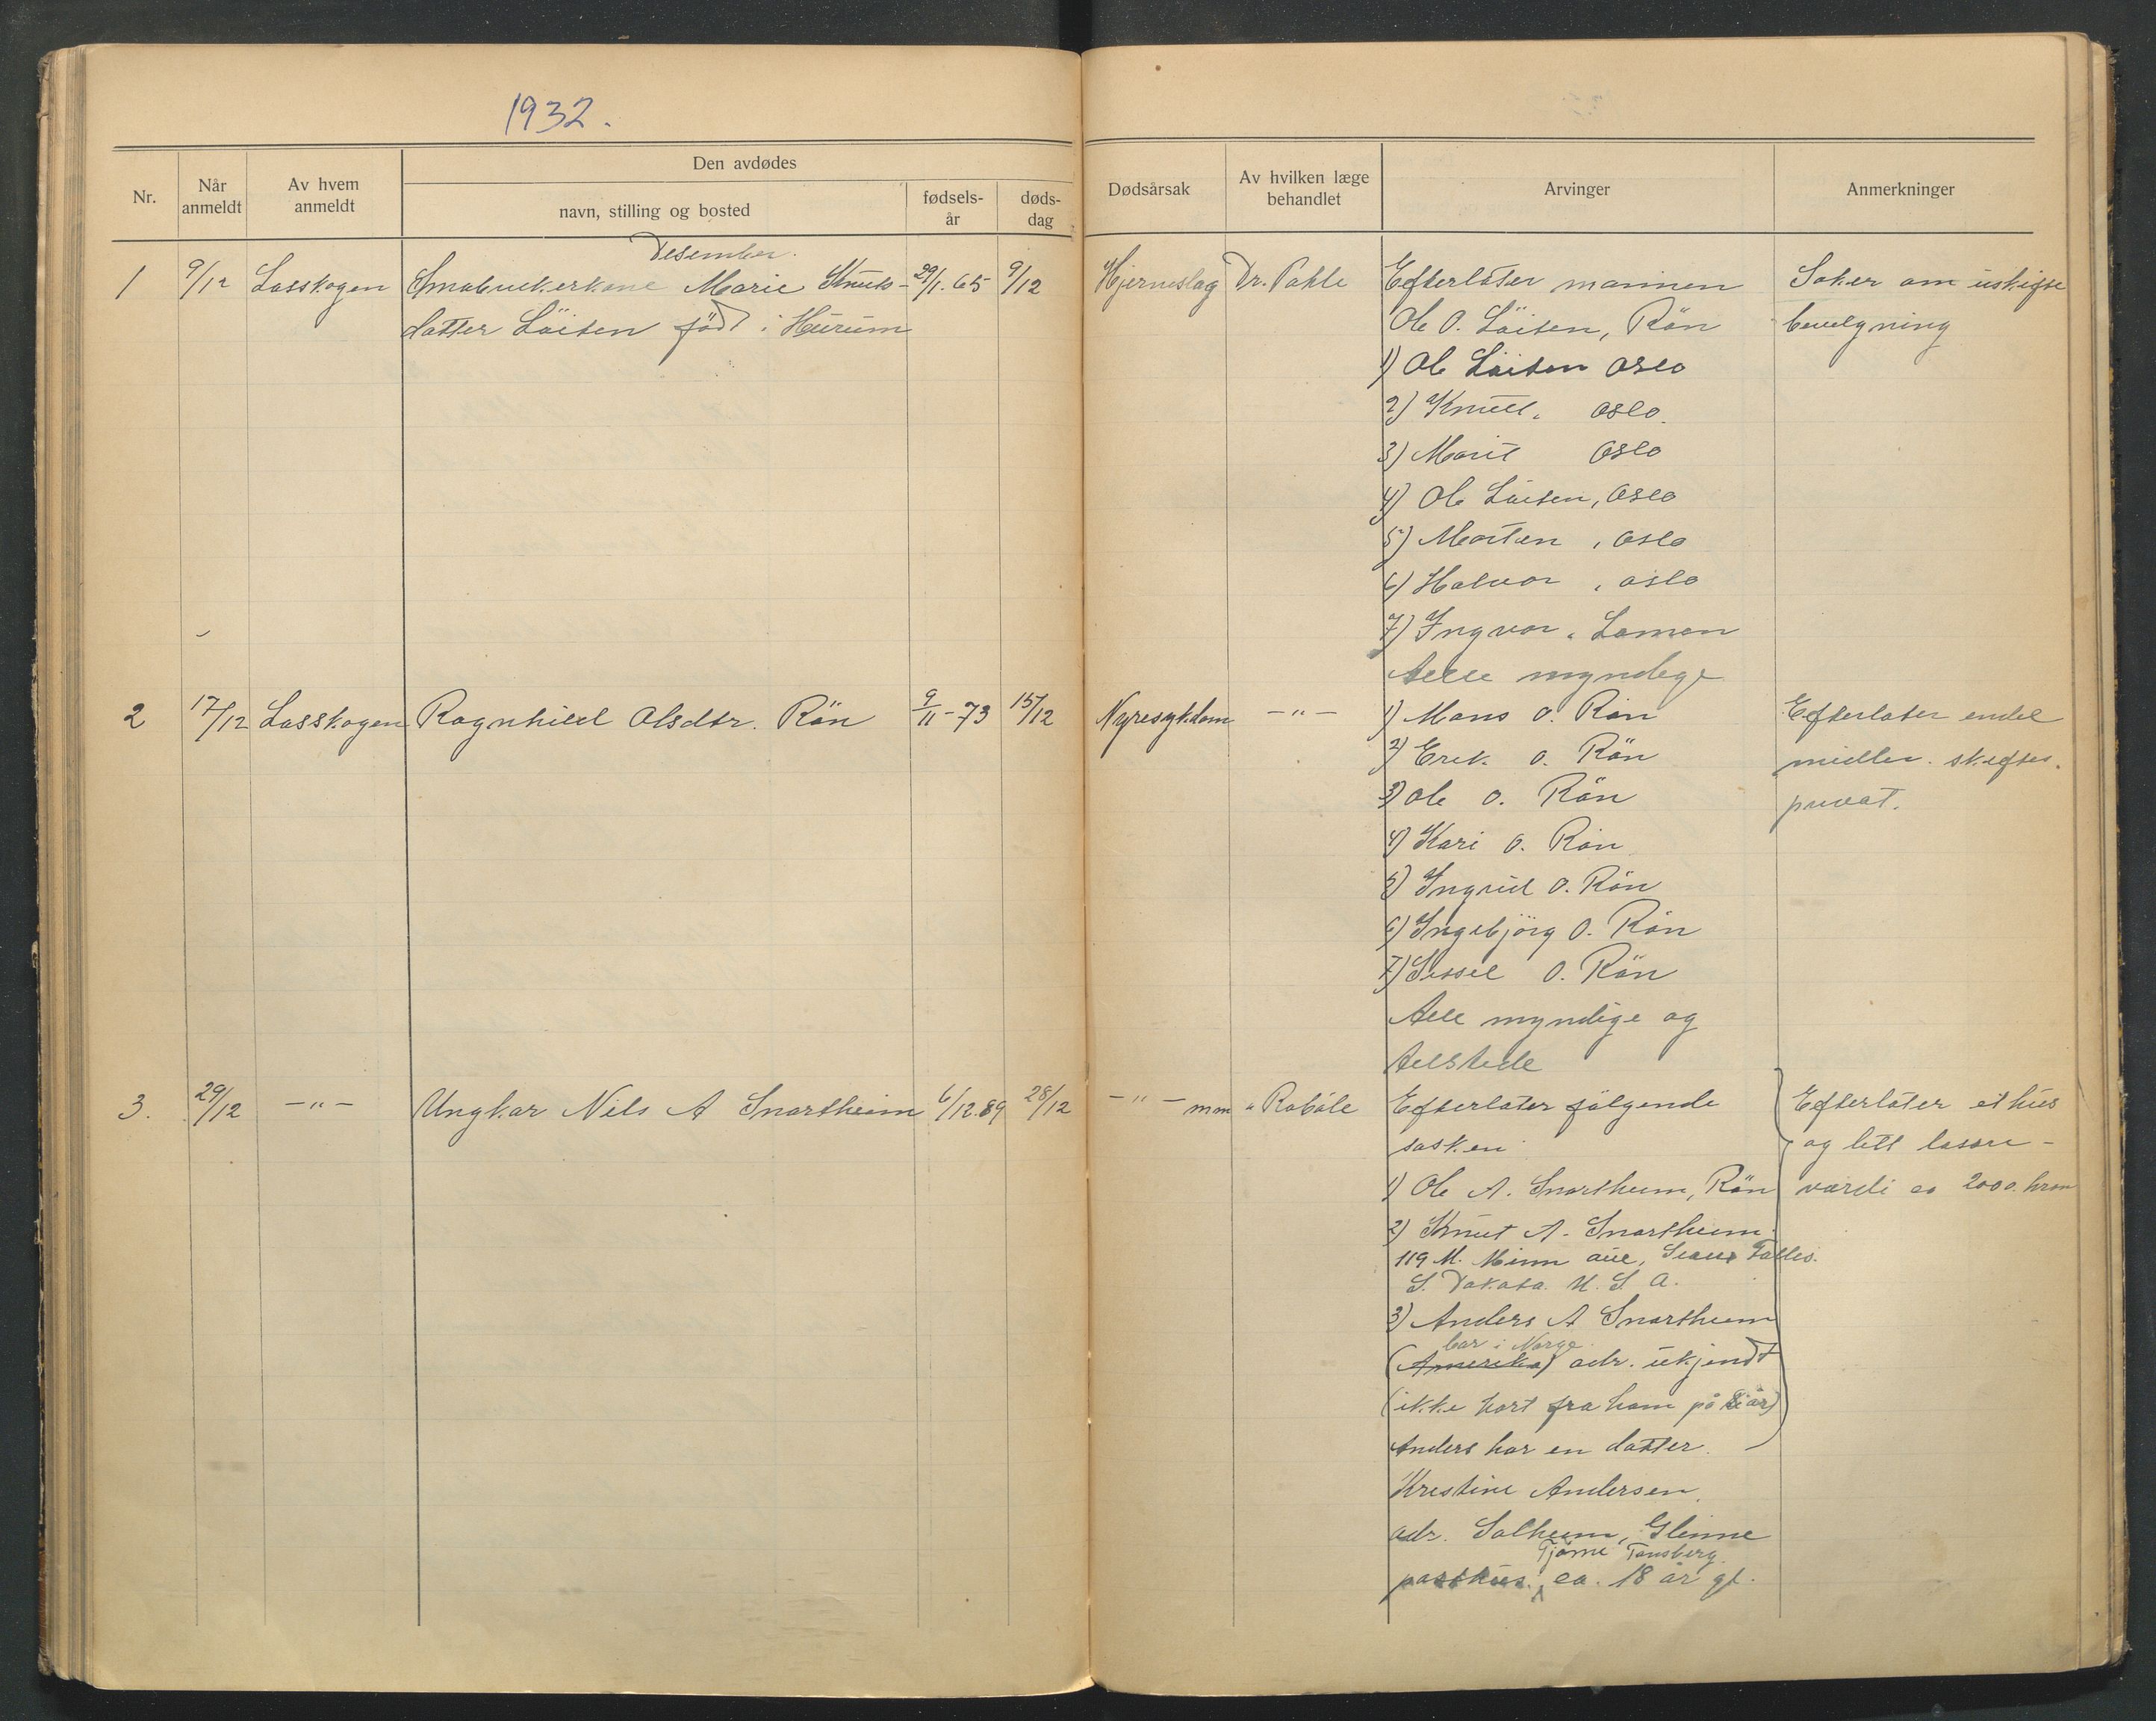 1932.
Nr.
Når anmeldt
Av hvem anmeldt
Den avdødes
navn, stilling og bosted
fødsels-år
døds-dag
Dødsårsak
Av hvilken læge behandlet
Arvinger
Anmerkninger
Desember.
1 9/12 Lasskogen Småbrukerkone Marie Knuts- 29/1.65 9/12 Hjerneslag Dr. Pahle Efterlater mannen Søker om uskifte
datter Löiten född i Hurum Ole O. Löiten, Rön bevilgning
1) Ole Löiten Oslo
2) Knut " Oslo.
3) Marit Oslo
4) Ole Löiten, Oslo
5) Morten " Oslo
6) Halvor " Oslo
7) Ingvar " Lomen
Alle myndige
2 17/12 Lasskogen Ragnhild Olsdtr. Rön 9/11-73 15/12 Nyresykdom -"- 1) Mons O. Rön Efterlater endel
2) Erik O. Rön midler. skiftes
3) Ole O. Rön privat.
4) Kari O. Rön
5) Ingrid O. Rön
6) Ingebjörg O. Rön
7) Sissel O. Rön
Alle myndige og
tilstede
3. 29/12 -"- Ungkar Nils A Snartheim 6/12.89 28/12 -"- mm " Robøle Efterlater følgende Efterlater et hus
søsken og litt løsøre -
1) Ole A. Snartheim, Rön værdi ca 2000. kron
2) Knut A. Snartheim.
119 M. Minn ave, Falles.
S. Dakota. U. S. A.
3) Anders A Snartheim
bor i Norge
(Amerika) adr. ukjendt
(ikke hørt fra ham på år)
Anders har en datter.
Kristine Andersen,
adr. Solheim, Glenne
Tjøme Tønsberg.
posthus. ca. 18 år gl.